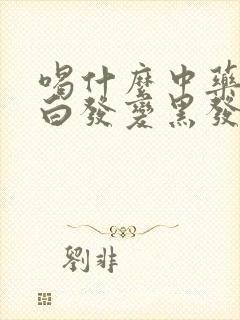 喝什麼中藥
白發變黑發
劉非